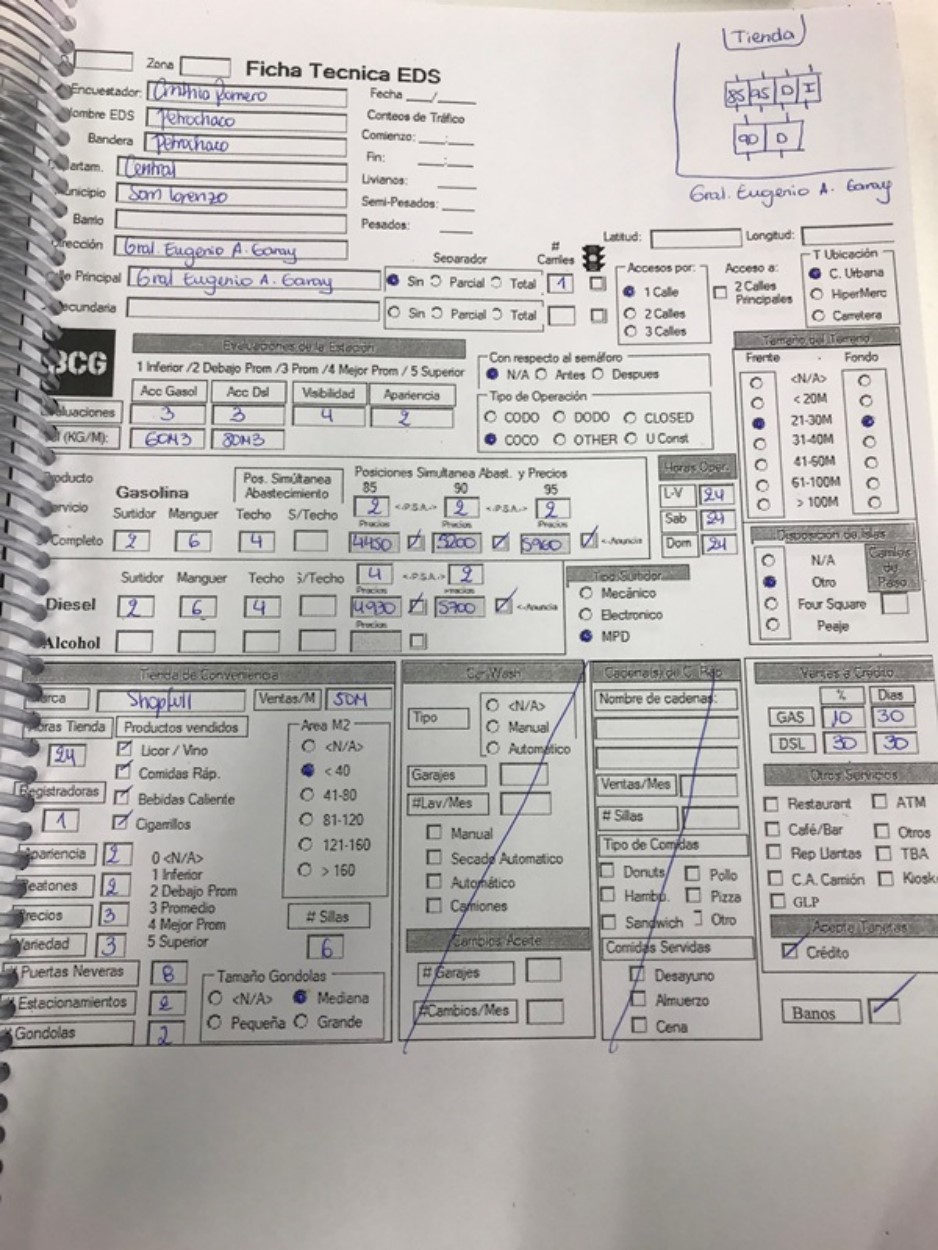 Tienda
85 95 D I
90 D
Gral. Eugenio A. Garay
Zona
Ficha Tecnica EDS
Encuestador: Cinthia Romero
Fecha __/__
ombre EDS Petrochaco
Conteos de Tráfico
Bandera Petrochaco
Comienzo: __:__
artam. Central
Fin: __:__
unicipio San Lorenzo
Livianos:
Barrio
Semi-Pesados:
Pesados:
rección Gral. Eugenio A. Garay
lle Principal Gral Eugenio A. Garay
ecundaria
Separador
# Carriles
Sin Parcial Total 1
Sin Parcial Total
Latitud: Longitud:
Accesos por:
1 Calle
2 Calles
3 Calles
Acceso a:
2 Calles Principales
T Ubicación
C. Urbana
HiperMerc
Carretera
BCG
Evaluaciones de la Estación
1 Inferior /2 Debajo Prom /3 Prom /4 Mejor Prom / 5 Superior
Acc Gasol Acc Dsl Visibilidad Apariencia
aluaciones 3 3 4 2
(KG/M): 60M3 80M3
Con respecto al semáforo
N/A Antes Despues
Tipo de Operación
CODO DODO CLOSED
COCO OTHER U Const
Tamaño del Terreno
Frente Fondo
<N/A>
< 20M
21-30M
31-40M
41-60M
61-100M
> 100M
roducto
Gasolina
Pos. Simúltanea Abastecimiento
Posiciones Simultanea Abast. y Precios
85 90 95
ervicio Surtidor Manguer Techo S/Techo
2 <-P.S.A.-> 2 <-P.S.A.-> 2
Precios Precios Precios
Completo 2 6 4 4450 5200 5960 <-Anuncia
Horas Oper.
L-V 24
Sab 24
Dom 24
Surtidor Manguer Techo S/Techo
4 <-P.S.A.-> 2
Precios Precios
Diesel 2 6 4 4930 5700 <-Anuncia
Precios
Alcohol
Tipo Surtidor
Mecánico
Electronico
MPD
Disposición de Islas
N/A
Otro
Four Square
Peaje
Camios de Paso
Tienda de Conveniencia
arca Shopfull Ventas/M 50M
oras Tienda 24
Productos vendidos
Licor / Vino
Comidas Ráp.
Bebidas Caliente
Cigarrillos
Registradoras
1
Area M2
<N/A>
< 40
41-80
81-120
121-160
> 160
Apariencia 2
eatones 2
recios 3
Variedad 3
0 <N/A>
1 Inferior
2 Debajo Prom
3 Promedio
4 Mejor Prom
5 Superior
# Sillas
6
# Puertas Neveras 8
Estacionamientos 2
Gondolas 2
Tamaño Gondolas
<N/A> Mediana
Pequeña Grande
Car Wash
Tipo
<N/A>
Manual
Automático
Garajes
#Lav/Mes
Manual
Secado Automatico
Automático
Camiones
Cambios Aceite
# Garajes
#Cambios/Mes
Cadena(s) de C. Rap
Nombre de cadenas:
Ventas/Mes
# Sillas
Tipo de Comidas
Donuts Pollo
Hambu. Pizza
Sandwich Otro
Comidas Servidas
Desayuno
Almuerzo
Cena
Ventas a Crédito
% Dias
GAS 10 30
DSL 30 30
Otros Servicios
Restaurant ATM
Café/Bar Otros
Rep Llantas TBA
C.A. Camión Kiosk
GLP
Acepta Tarjetas
Crédito
Banos